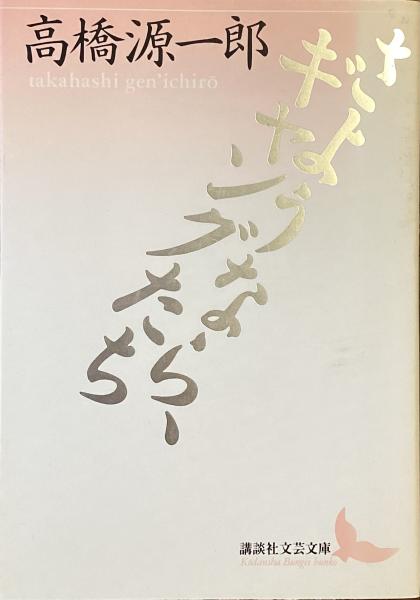 高橋源一郎
takahashi gen'ichirō
さようなら、
ギャングたち
講談社文芸文庫
Kōdansha Bungei bunko